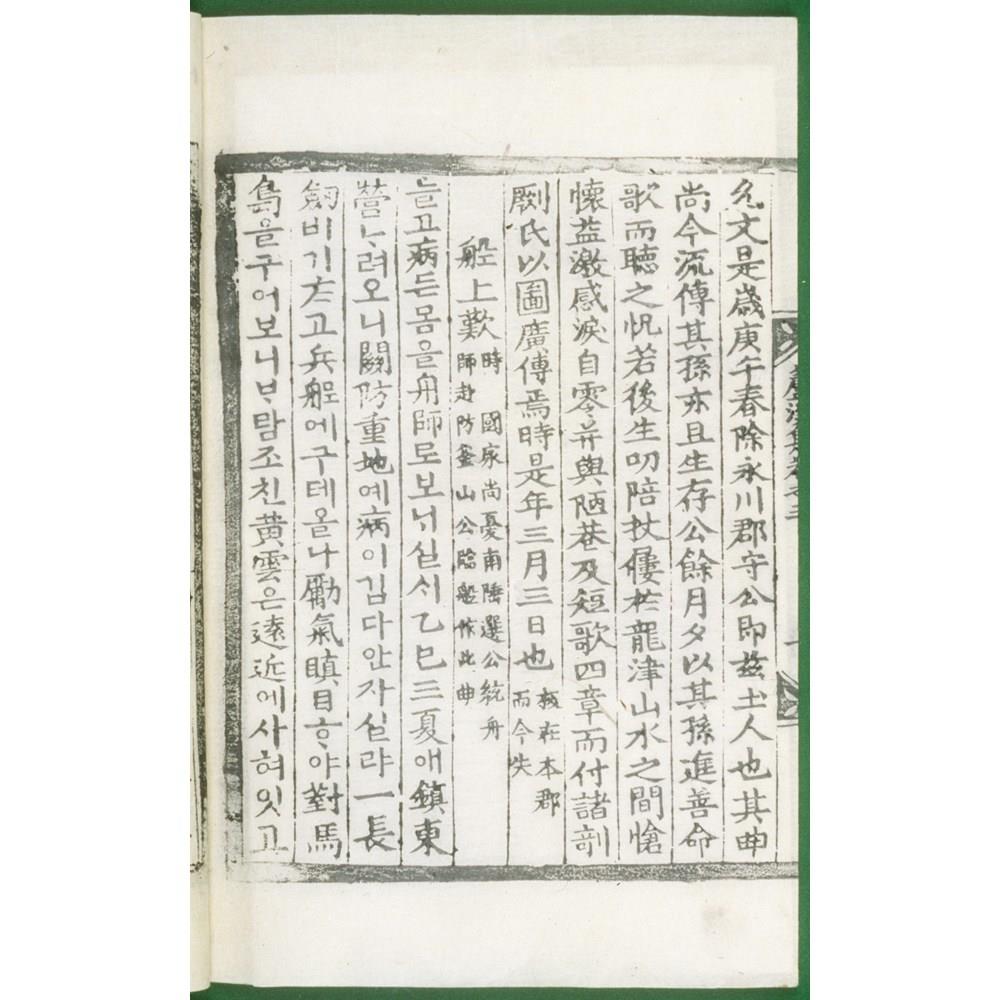 允文是歲庚午春除永川郡守公即玆土人也其曲
尙今流傳其孫亦且生存公餘月夕以其孫進善命
歌而聽之怳若後生叨陪杖屨於龍津山水之間愴
懷益激感淚自零并與陋巷及短歌四章而付諸剞
劂氏以圖廣傳焉時是年三月三日也 板在本郡
而今失
船上歎 時 國家尙憂南陲選公統舟
師赴防釜山公臨船作此曲
늘고病든몸을舟師로보ᄂᆡ실ᄉᆡ乙巳三夏애鎭東
營ᄂᆞ려오니關防重地예病이깁다안자실랴一長
劒비기ᄎᆞ고兵船에구테올나勵氣瞋目ᄒᆞ야對馬
島을구어보니ᄇᆞ람조친黃雲은遠近에사혀잇고